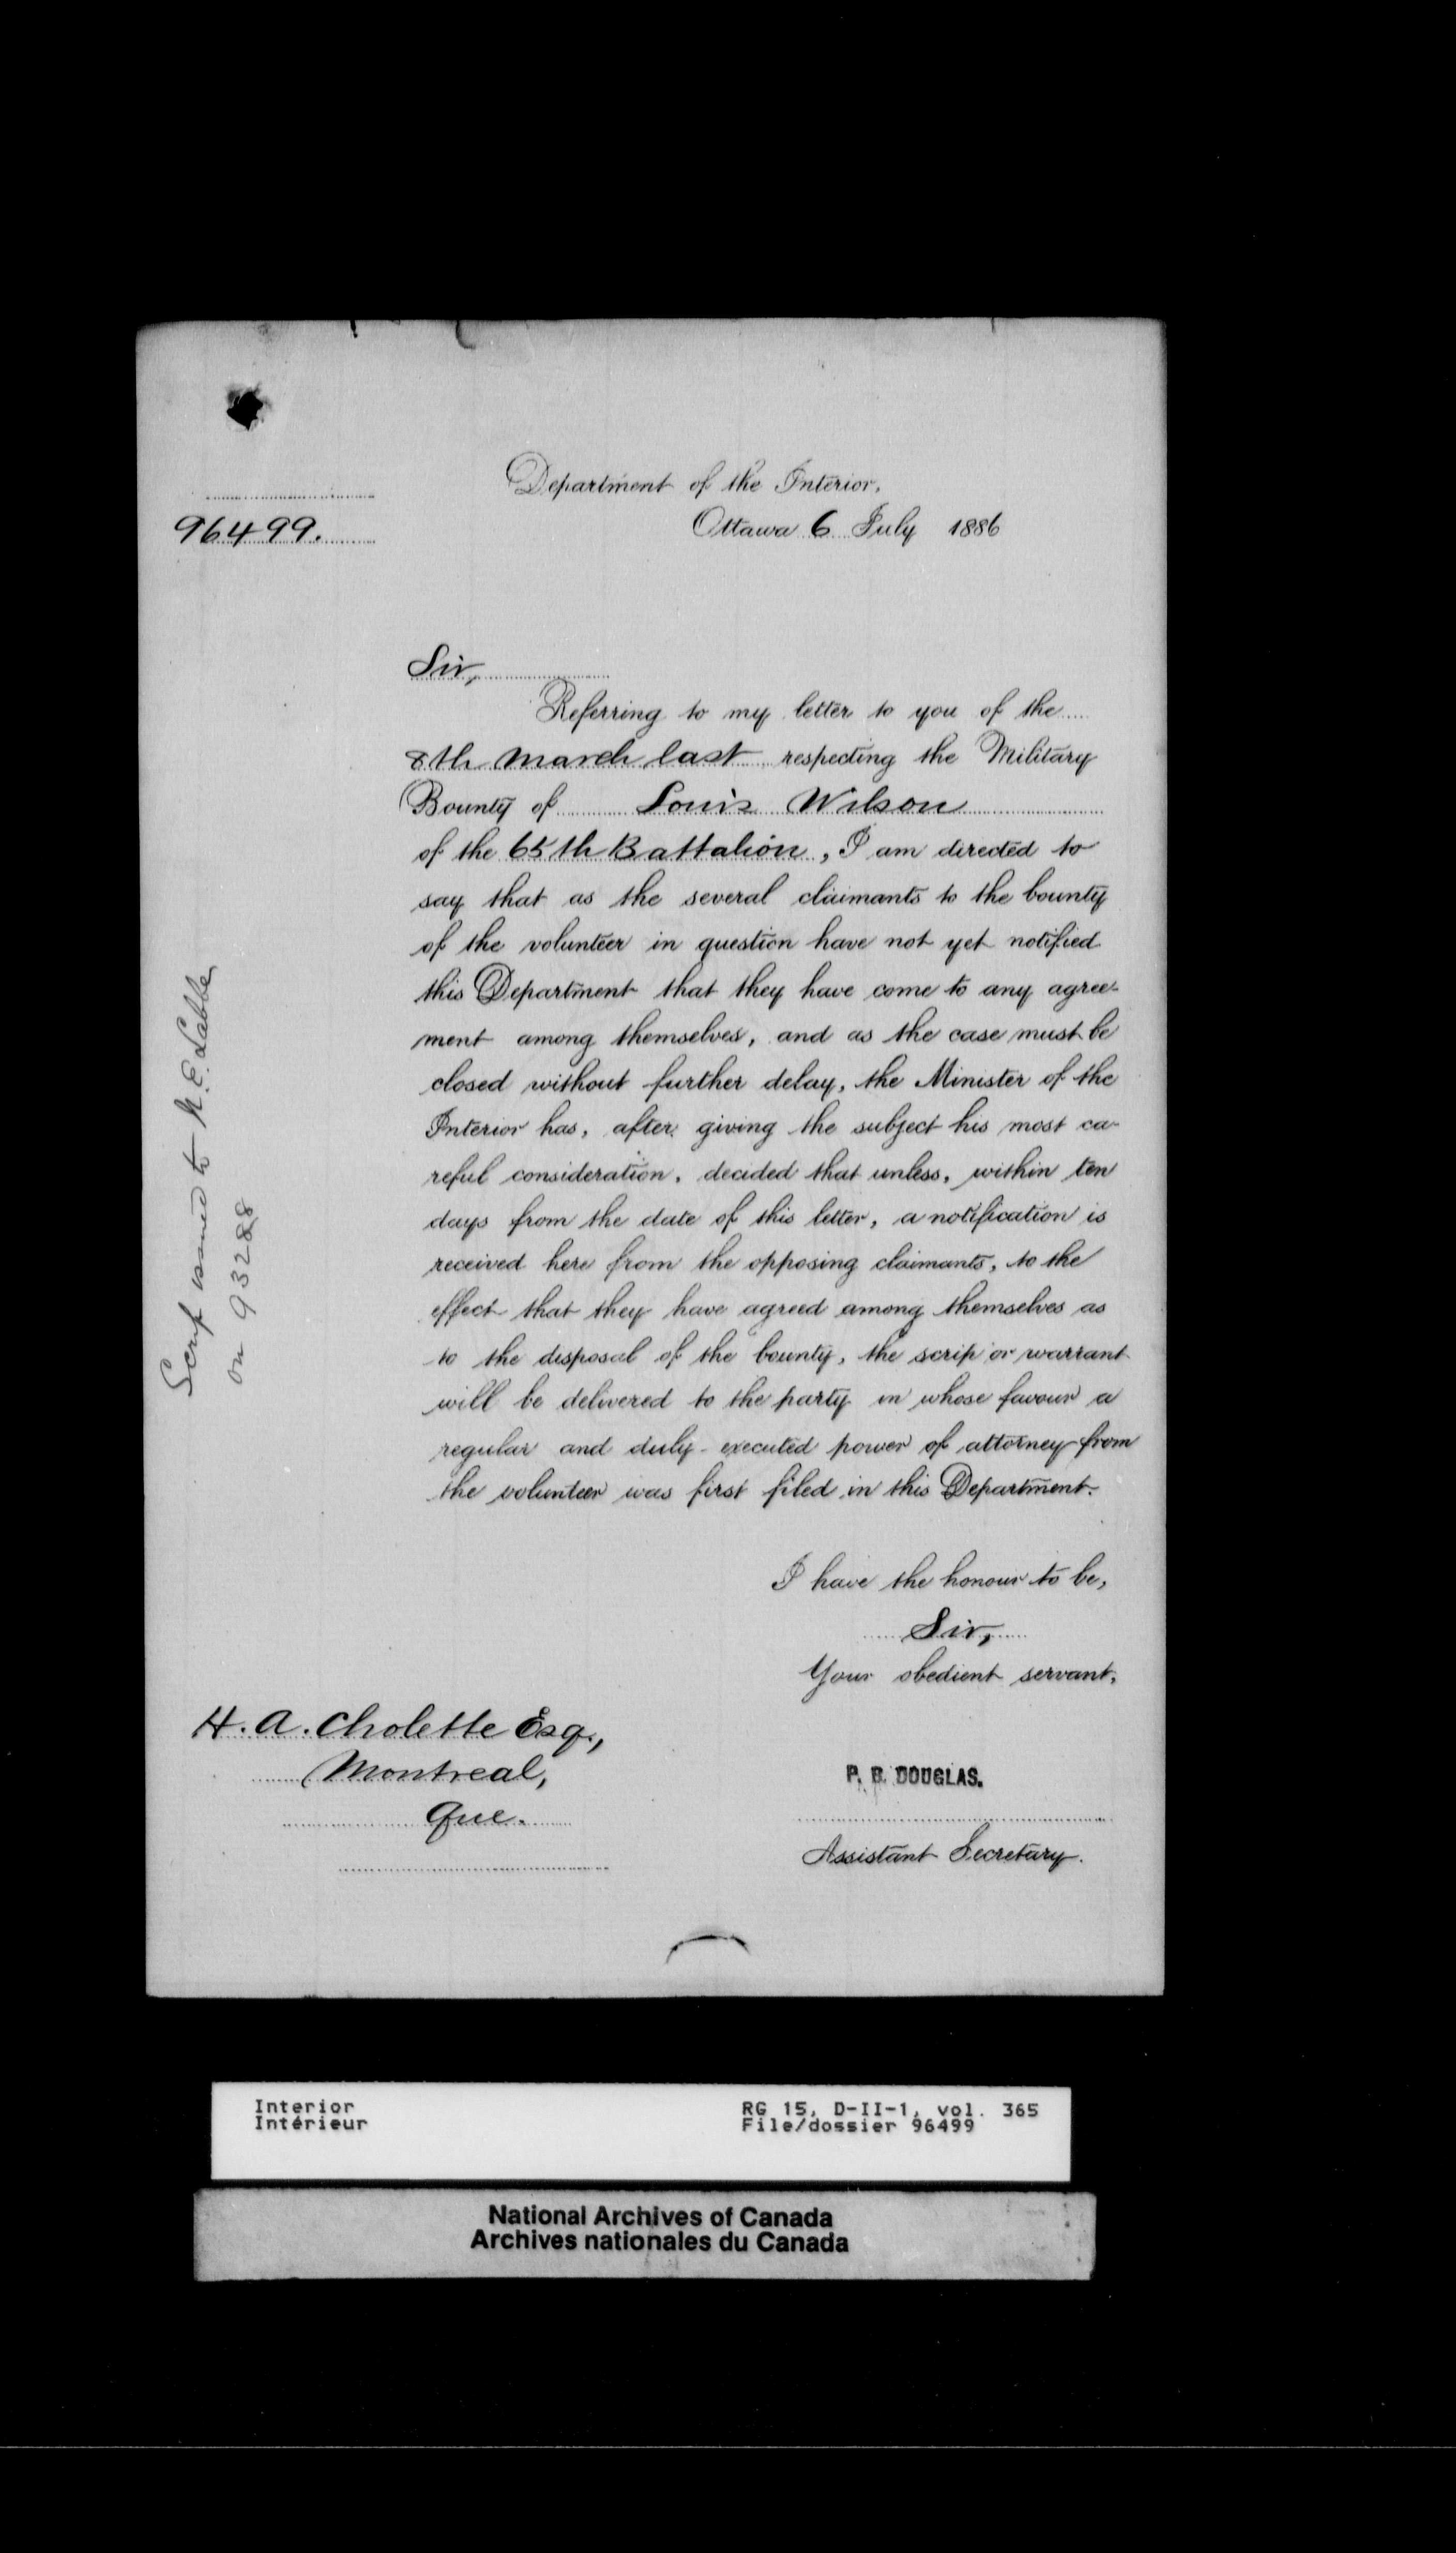 Department of the Interior,
96499.
Ottawa 6 July 1886
Sir,
Referring to my letter to you of the
8th March last respecting the Military
Bounty of Louis Wilson
of the 65th Battalion, I am directed to
say that as the several claimants to the bounty
of the volunteer in question have not yet notified
this Department that they have come to any agree-
ment among themselves, and as the case must be
closed without further delay, the Minister of the
Interior has, after giving the subject his most ca-
reful consideration, decided that unless, within ten
days from the date of this letter, a notification is
received here from the opposing claimants, to the
effect that they have agreed among themselves as
to the disposal of the bounty, the scrip or warrant
will be delivered to the party in whose favour a
regular and duly executed power of attorney from
the volunteer was first filed in this Department.
I have the honour to be,
Sir,
Your obedient servant,
H. A. Cholette Esq.,
Montreal,
Que.
P. B. DOUGLAS.
Assistant Secretary.
Scrip issued to
on 93288
Interior
Intérieur
RG 15, D-II-1, vol. 365
File/dossier 96499
National Archives of Canada
Archives nationales du Canada